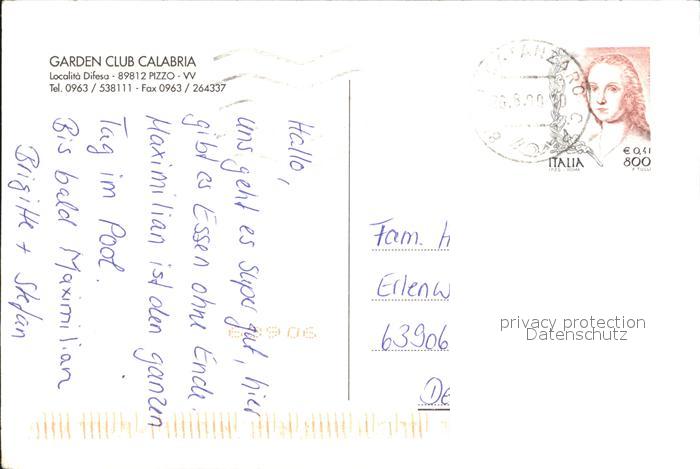 GARDEN CLUB CALABRIA
Località Difesa - 89812 PIZZO - VV
Tel. 0963 / 538111 - Fax 0963 / 264337
Hallo,
uns geht es super gut, hier
gibt es Essen ohne Ende.
Maximilian ist den ganzen
Tag im Pool.
Bis bald Maximilian
Brigitte + Stefan
CATANZARO
ITALIA
€ 0,41
800
I.P.Z.S. - ROMA
F. TULLI
Fam. H
Erlenw
63906
De
63906
privacy protection
Datenschutz